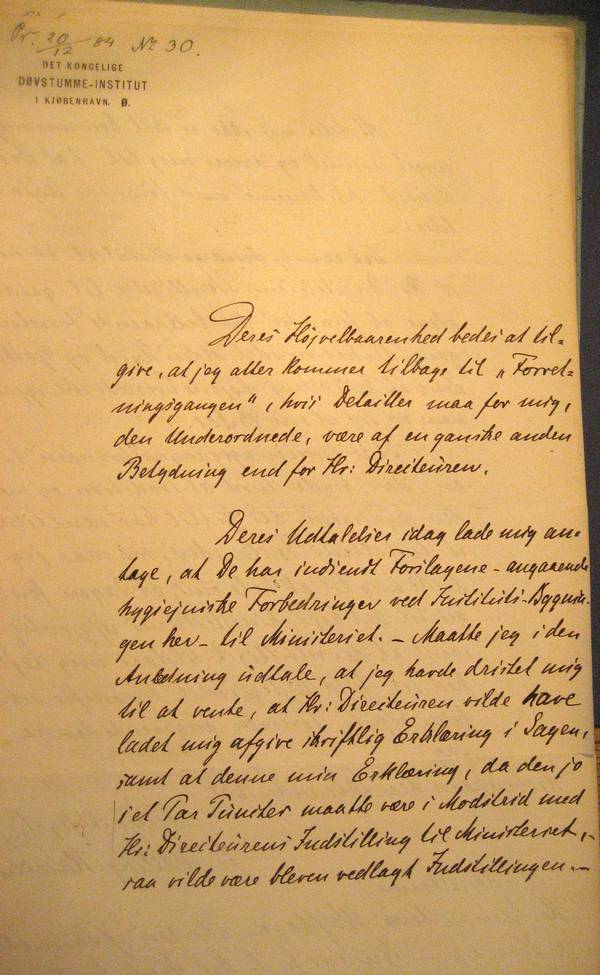 Pr. 20/12 84 No 30.
DET KONGELIGE
DØVSTUMME-INSTITUT
I KJØBENHAVN. Ø.
Deres Højvelbaarenhed bedes at til-
give, at jeg atter kommer tilbage til „Forret-
ningsgangen“, hvis Detailler maa for mig,
den Underordnede, være af en ganske anden
Betydning end for Hr: Directeuren.
Deres Udtalelser idag lade mig an-
tage, at De har indsendt Forslagene - angaaende
hygiejniske Forbedringer ved Instituts-Bygnin-
gen her - til Ministeriet. - Maatte jeg i den
Anledning udtale, at jeg havde dristet mig
til at vente, at Hr: Directeuren vilde have
ladet mig afgive skriftlig Erklæring i Sagen,
samt at denne min Erklæring, da den jo
i et Par Puncter maatte være i Modstrid med
Hr: Directeurens Indstilling til Ministeriet, -
saa vilde være bleven vedlagt Indstillingen. -